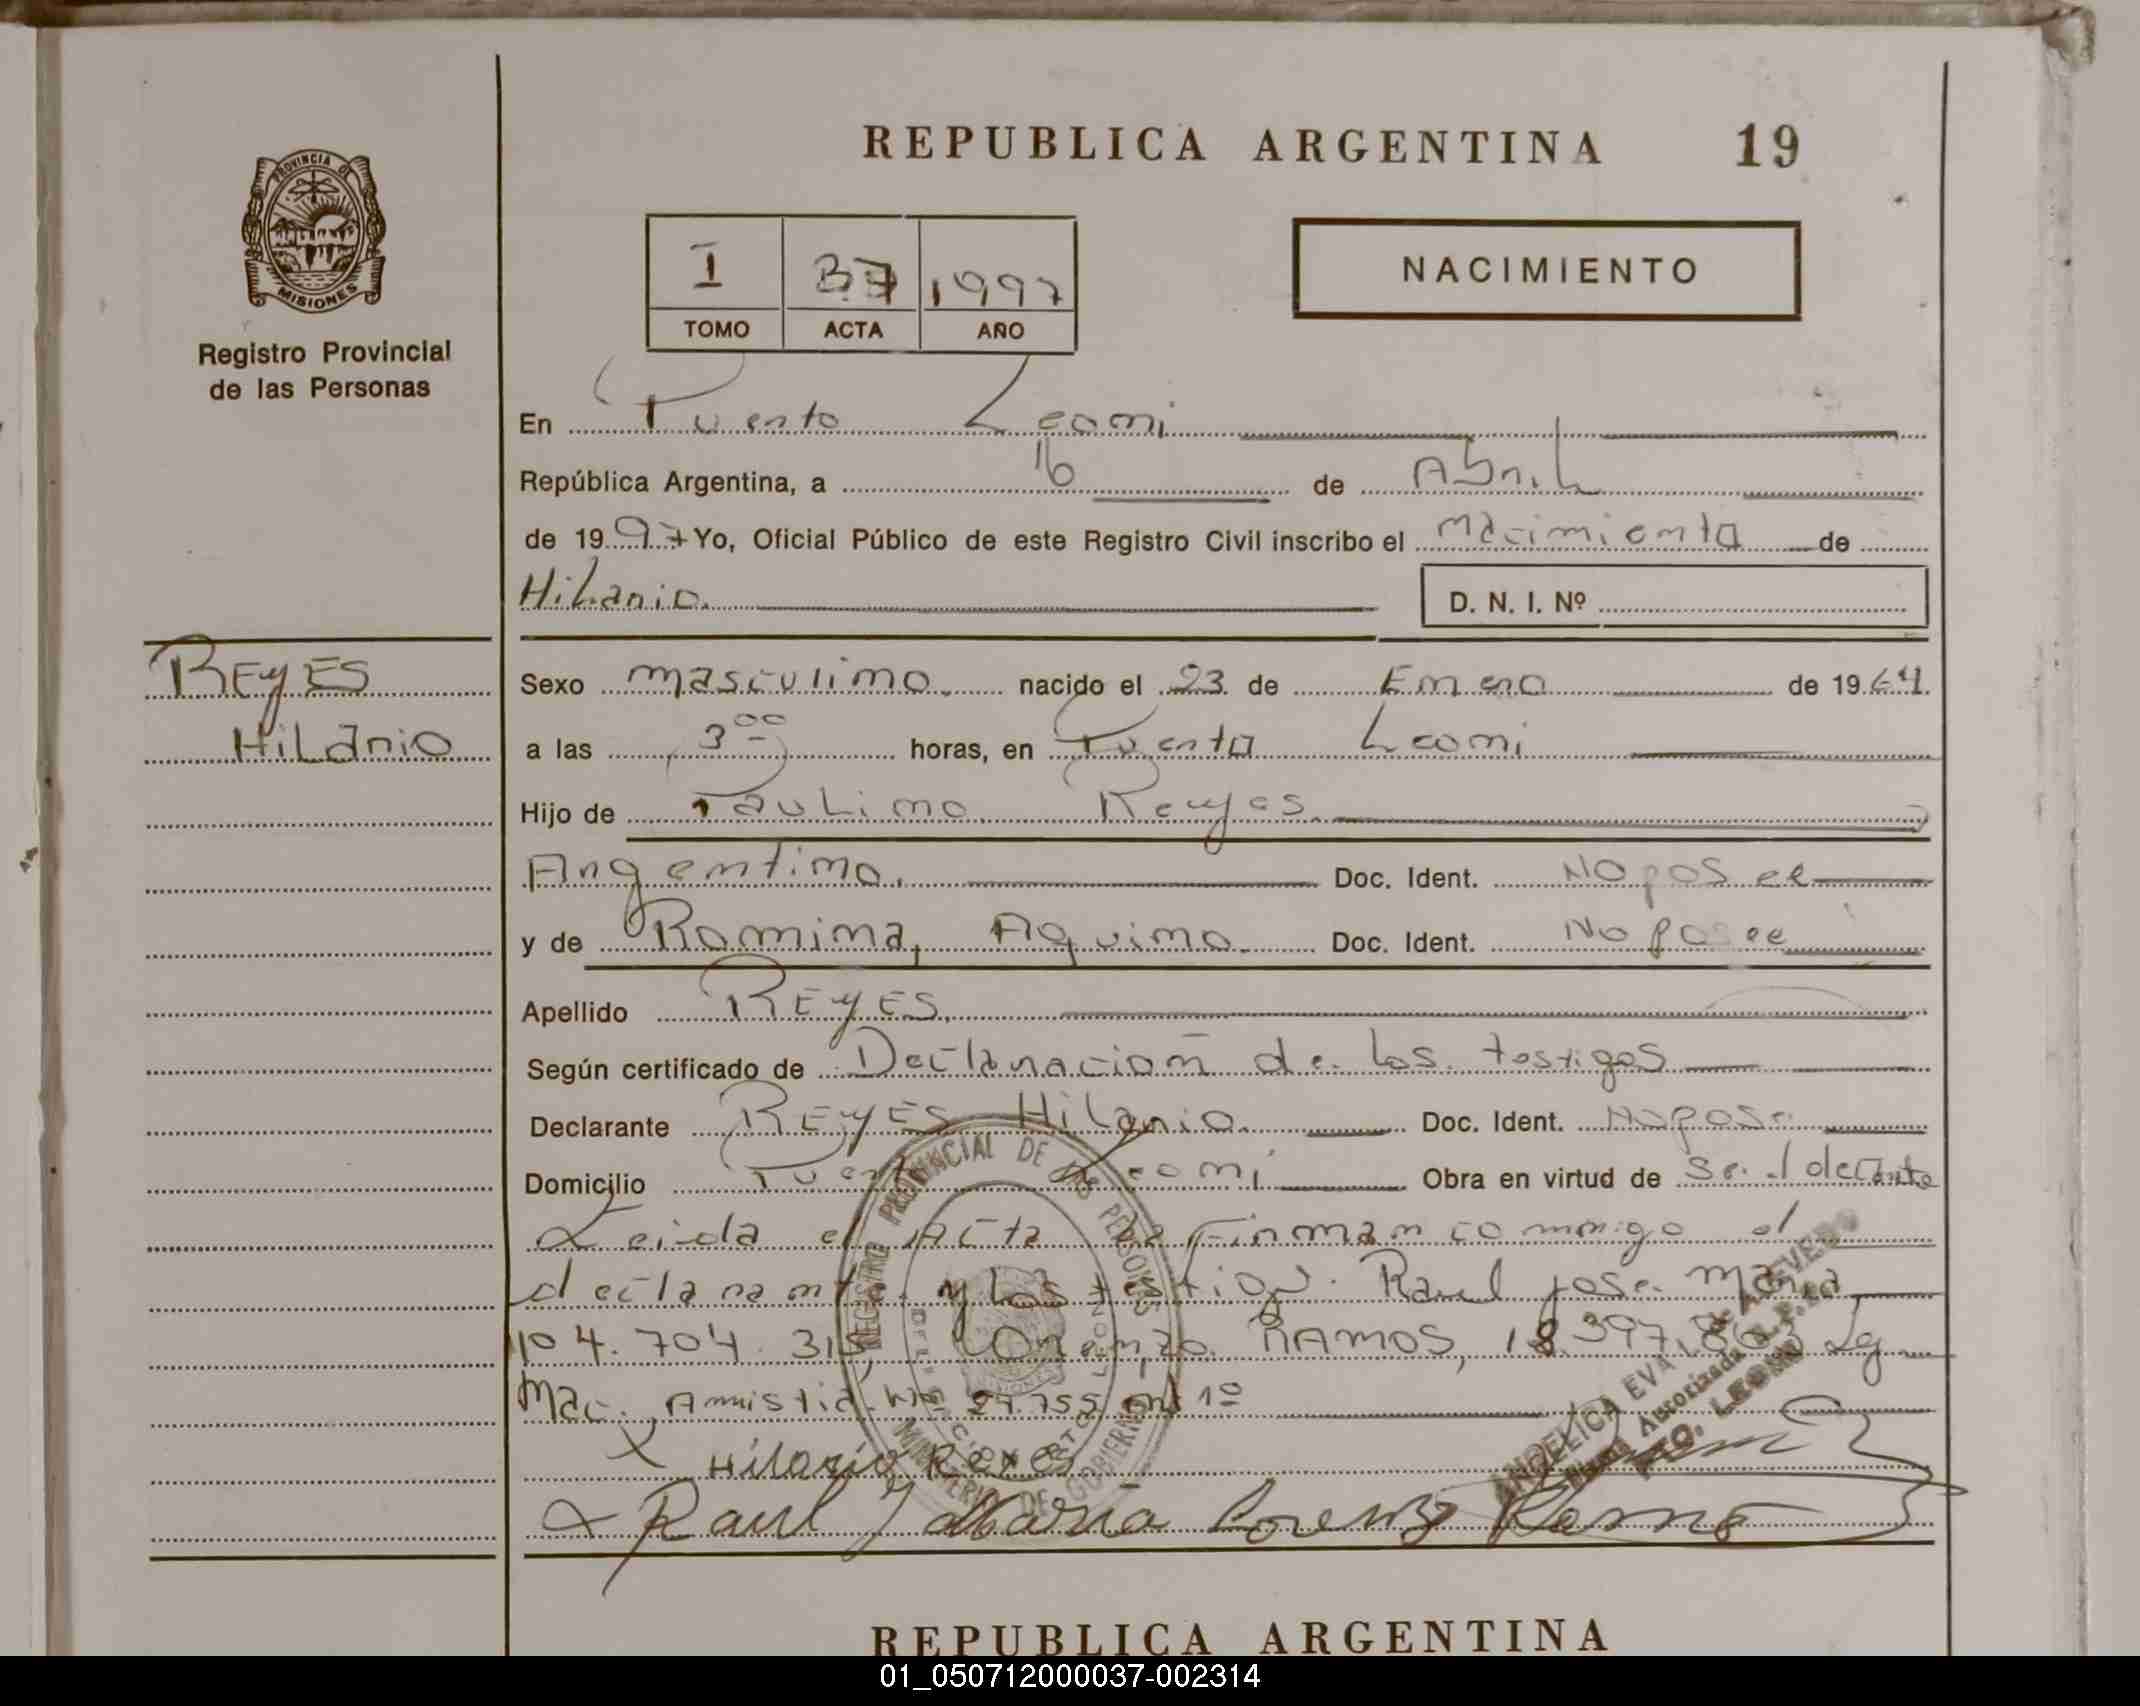 REPUBLICA ARGENTINA 19
PROVINCIA DE
MISIONES
Registro Provincial
de las Personas
I 37 1997
TOMO ACTA AÑO
NACIMIENTO
En Puerto Leoni
República Argentina, a 16 de Abril
de 1997 Yo, Oficial Público de este Registro Civil inscribo el nacimiento de
Hilario.
D. N. I. Nº
REYES
Hilario
Sexo masculino. nacido el 23 de Enero de 1964.
a las 3 00 horas, en Puerto Leoni
Hijo de Paulino Reyes.
Argentino. Doc. Ident. No posee
y de Romina, Aquino. Doc. Ident. No posee
Apellido REYES.
Según certificado de Declaración de los testigos
Declarante REYES Hilario. Doc. Ident. No pose
Domicilio Puerto Leoni Obra en virtud de
Leida el Acta la Firman conmigo el
declarante y los testigo. Raul Jose Maria
Lorenzo RAMOS,
Nac. Amistia
Hilario Reyes
Raul J Maria Lorenzo Ramos
REGISTRO PROVINCIAL DE LAS PERSONAS
MINISTERIO DE GOBIERNO
ANGELICA EVA de ACEVEDO
Firma Autorizada R.P.P.
PTO. LEONI
REPUBLICA ARGENTINA
01_050712000037-002314